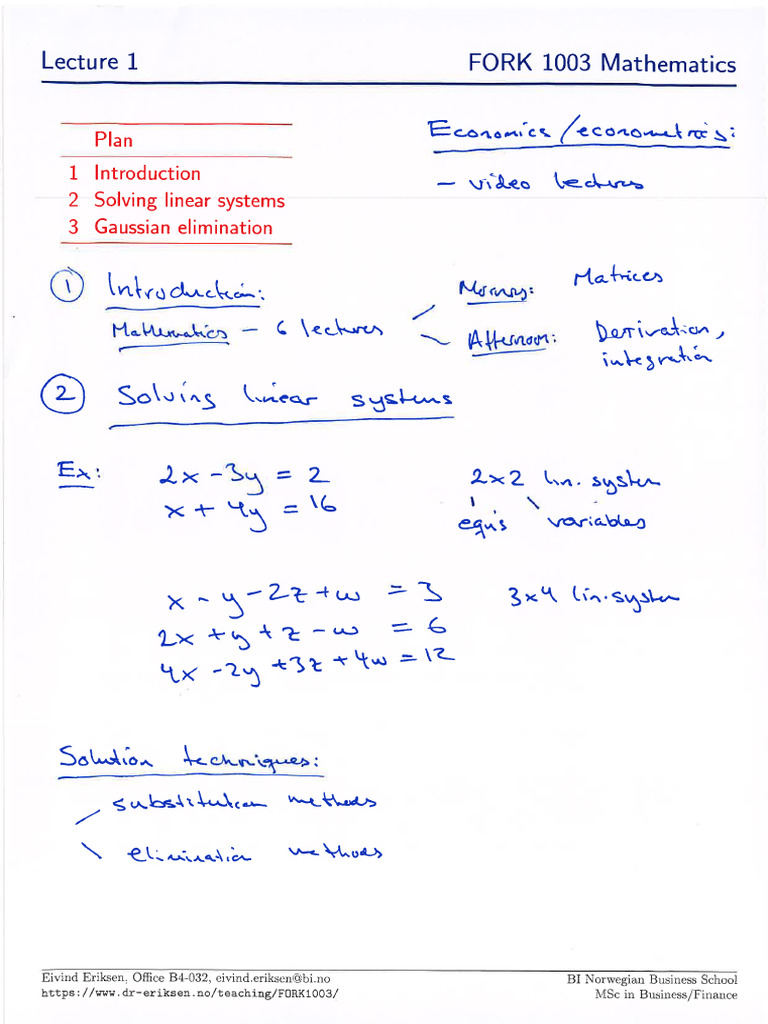 Lecture 1
FORK 1003 Mathematics
Plan
1 Introduction
2 Solving linear systems
3 Gaussian elimination
Economics/econometrics:
– video lectures
① Introduction:
Mathematics – 6 lectures
Morning: Matrices
Afternoon: Derivation,
integration
② Solving linear systems
Ex:
2x - 3y = 2
x + 4y = 16
2x2 lin. system
eqn's variables
x - y - 2z + w = 3
2x + y + z - w = 6
4x - 2y + 3z + 4w = 12
3x4 lin. system
Solution techniques:
substitution methods
elimination methods
Eivind Eriksen, Office B4-032, eivind.eriksen@bi.no
https://www.dr-eriksen.no/teaching/FORK1003/
BI Norwegian Business School
MSc in Business/Finance